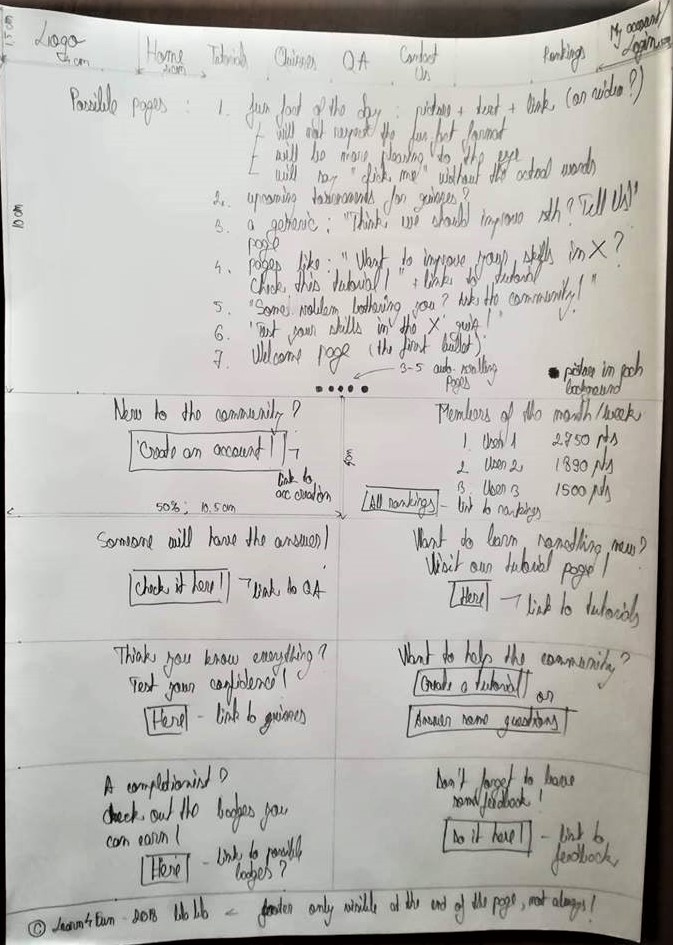 1.5cm
Logo
4 cm
Home
2cm
Tutorials
Quizzes
QA
Contact
Us
Rankings
My account/
Login
10 cm
Possible pages : 1. fun fact of the day : picture + text + link (or video?)
will not respect the fun fact format
will be more pleasing to the eye
will say "click me" without the actual words
2. upcoming tournaments for quizzes?
3. a generic : "Think we should improve sth? Tell Us!"
page
4. pages like : "Want to improve your skills in X?
Check this tutorial!" + link to tutorial
5. "Some problem bothering you? Ask the community!"
6. "Test your skills in the X quiz!"
7. Welcome page (the first bullet)
3-5 auto scrolling
pages
picture in each
background
New to the community?
Create an account!
link to
acc creation
50%; 10.5cm
Members of the month/week
1. User 1 2750 pts
2 User 2 1890 pts
3 User 3 1500 pts
All rankings - link to rankings
Someone will have the answer!
Check it here! link to QA
Want to learn something new?
Visit our tutorial page!
Here link to tutorials
Think you know everything?
Test your confidence!
Here - link to quizzes
Want to help the community?
Create a tutorial!
or
Answer some questions
A completionist?
check out the badges you
can earn!
Here - link to possible
badges?
Don't forget to leave
some feedback!
Do it here! - link to
feedback
© Learn4Fun - 2018 bla bla footer only visible at the end of the page, not always!